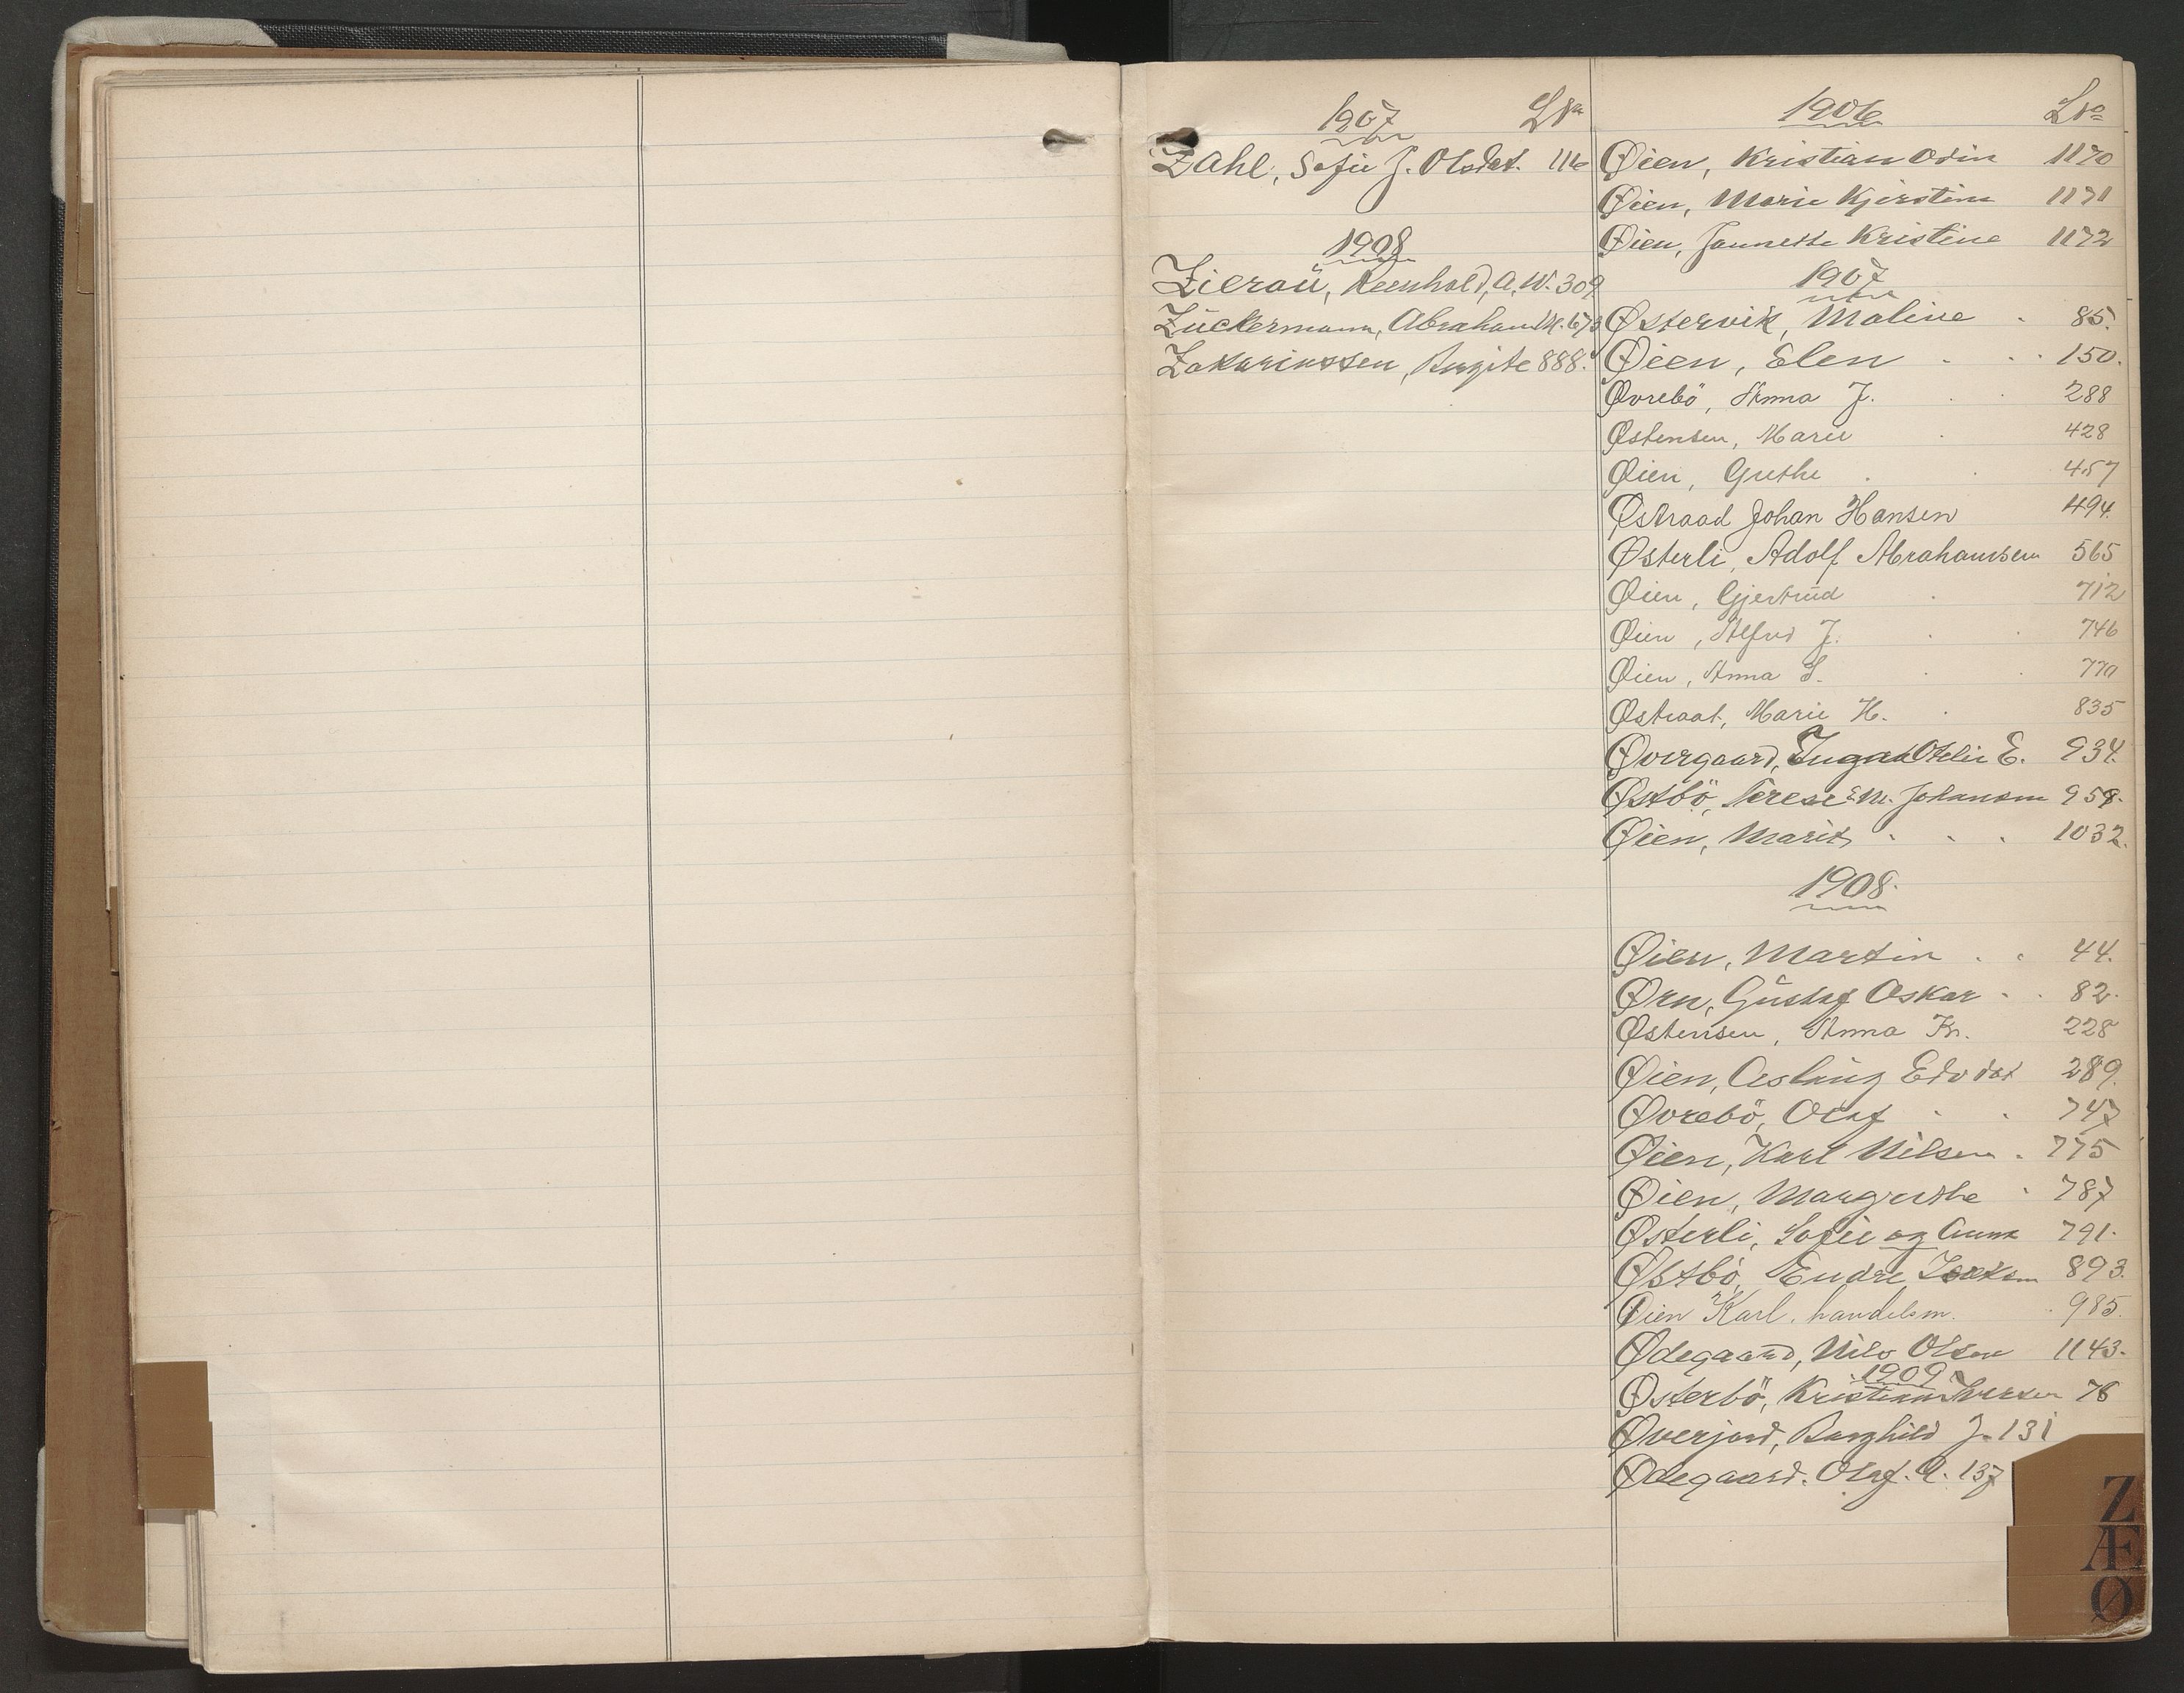 1907 LNo
Zahl, Sofie J. Olsdat. 116
1908
Zierau, Reinhold, A. W. 309
Zückermann, Abraham M. 673
Zakariassen, Birgite 888.
1906 LNo
Øien, Kristian Odin 1170
Øien, Marie Kjerstine 1171
Øien, Jannette Kristine 1172
1907
Østervik, Maline 85.
Øien, Elen 150.
Øvrebö, Anna J. 288
Østensen, Marie 428
Øien, Grethe 457
Østraad Johan Hansen 494.
Østerli, Adolf Abrahamsen 565
Øien, Gjertrud 712
Øien, Alfred J. 746
Øien, Anna S. 770
Østraat, Marie H. 835
Øvergaard, Otelie E. 934.
Østbö, Terese E.M. Johansen 958.
Øien, Marit 1032.
1908.
Øien, Martin 44.
Ørn, Gustaf Oskar 82.
Østensen, Anna Kr. 228
Øien, Aslaug Edvdat 289.
Øvrebö, Olaf 747
Øien, Karl Nilsen 775
Øien, Margrethe 787
Østerli, Sofie og Anna 791.
Østbö, Endre 893.
Øien Karl, handelsm. 985.
Ødegaard, Nils Olsen 1143.
1909
Østerbö, Kristian Iversen 76
Øverjord, Borghild J. 131
Ødegaard. Olaf. A. 137
Z
Æ
Ø